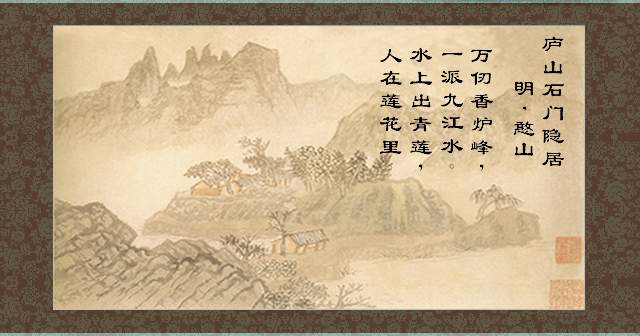 庐山石门隐居
明·憨山
万仞香炉峰，
一派九江水。
水上出青莲，
人在莲花里